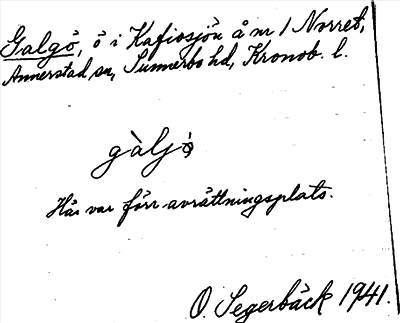 Galgö, ö i Kafvosjön å nr 1 Norret,
Annerstad sn, Sunnerbo hd, Kronob. l.
gàljö̀
Här var förr avrättningsplats.
O. Segerbäck 1941.